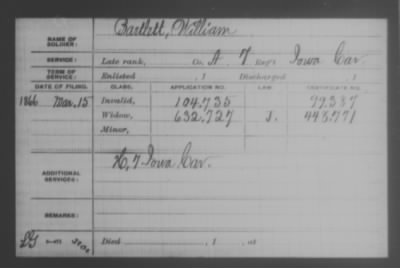 NAME OF SOLDIER: Bartlett, William
SERVICE: Late rank, Co. A 7 Reg't Iowa Cav.
TERM OF SERVICE: Enlisted , 1 Discharged , 1
DATE OF FILING. CLASS. APPLICATION NO. LAW. CERTIFICATE NO.
1866 Mar. 15 Invalid, 104.735 99.387
Widow, 632.727 J. 448.771
Minor,
ADDITIONAL SERVICES: H, 7 Iowa Cav.
REMARKS:
Died , 1 , at